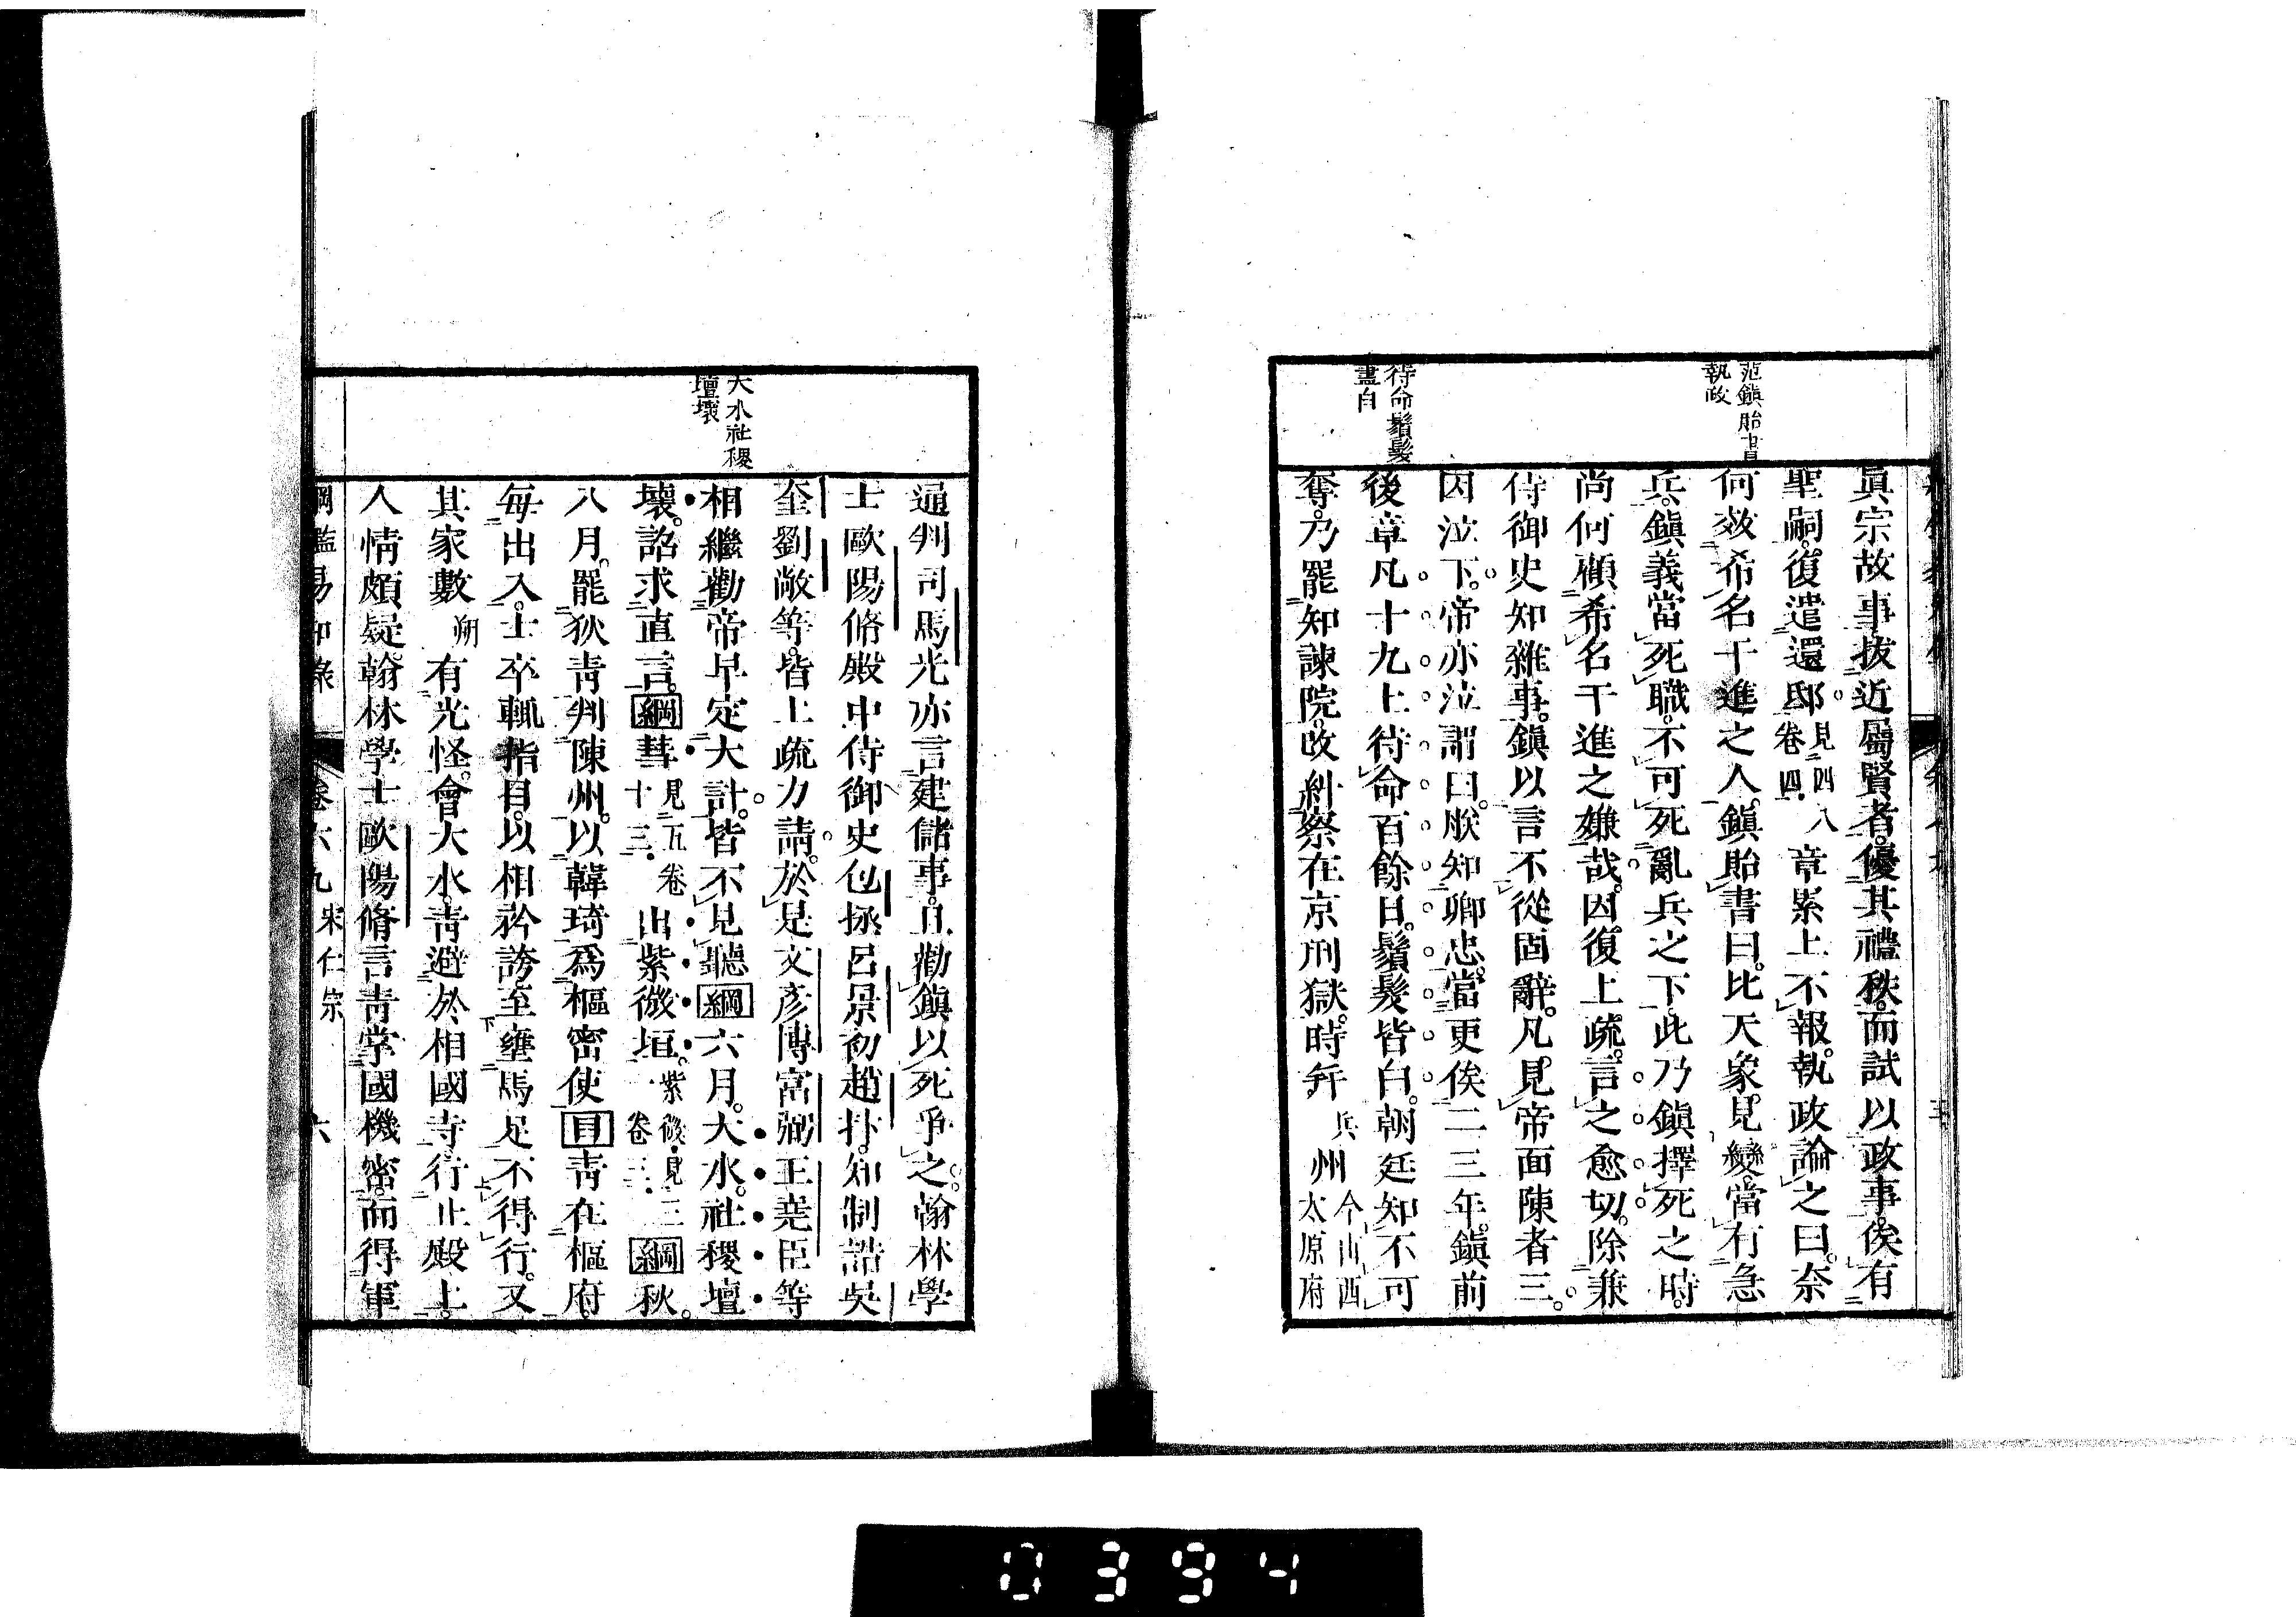 范鎮貽書
執政
待命鬚髮
盡白
眞宗故事。拔近屬賢者。優其禮秩。而試以政事。俟有
聖嗣。復遣還邸。見四八卷四。章累上不報。執政諭之曰。奈
何效希名干進之人。鎮貽書曰。比天象見變。當有急
兵。鎮義當死職。不可死亂兵之下。此乃鎮擇死之時。
尚何顧希名干進之嫌哉。因復上疏。言之愈切。除兼
侍御史知雜事。鎮以言不從固辭。凡見帝面陳者三。
因泣下。帝亦泣謂曰。朕知卿忠。當更俟二三年。鎮前
後章凡十九上。待命百餘日。鬚髮皆白。朝廷知不可
奪。乃罷知諫院。改糾察在京刑獄。時幷兵州今山西太原府
大水社稷
壇壞
通判司馬光亦言建儲事。且勸鎮以死爭之。翰林學
士歐陽脩殿中侍御史包拯呂景初趙抃。知制誥吳
奎劉敞等。皆上疏力請。於是文彥博富弼王堯臣等
相繼勸帝早定大計。皆不見聽綱六月。大水。社稷壇
壞。詔求直言。綱彗見五卷十三。出紫微垣。紫微見三卷三一。綱秋。
八月。罷狄青判陳州。以韓琦爲樞密使目青在樞府。
每出入。士卒輒指目。以相矜誇。至壅馬足不得行。又
其家數朔有光怪。會大水。青避於相國寺。行止殿上。
人情頗疑。翰林學士歐陽脩言青掌國機密。而得軍
綱鑑易知錄 卷六九 宋仁宗 六
0394